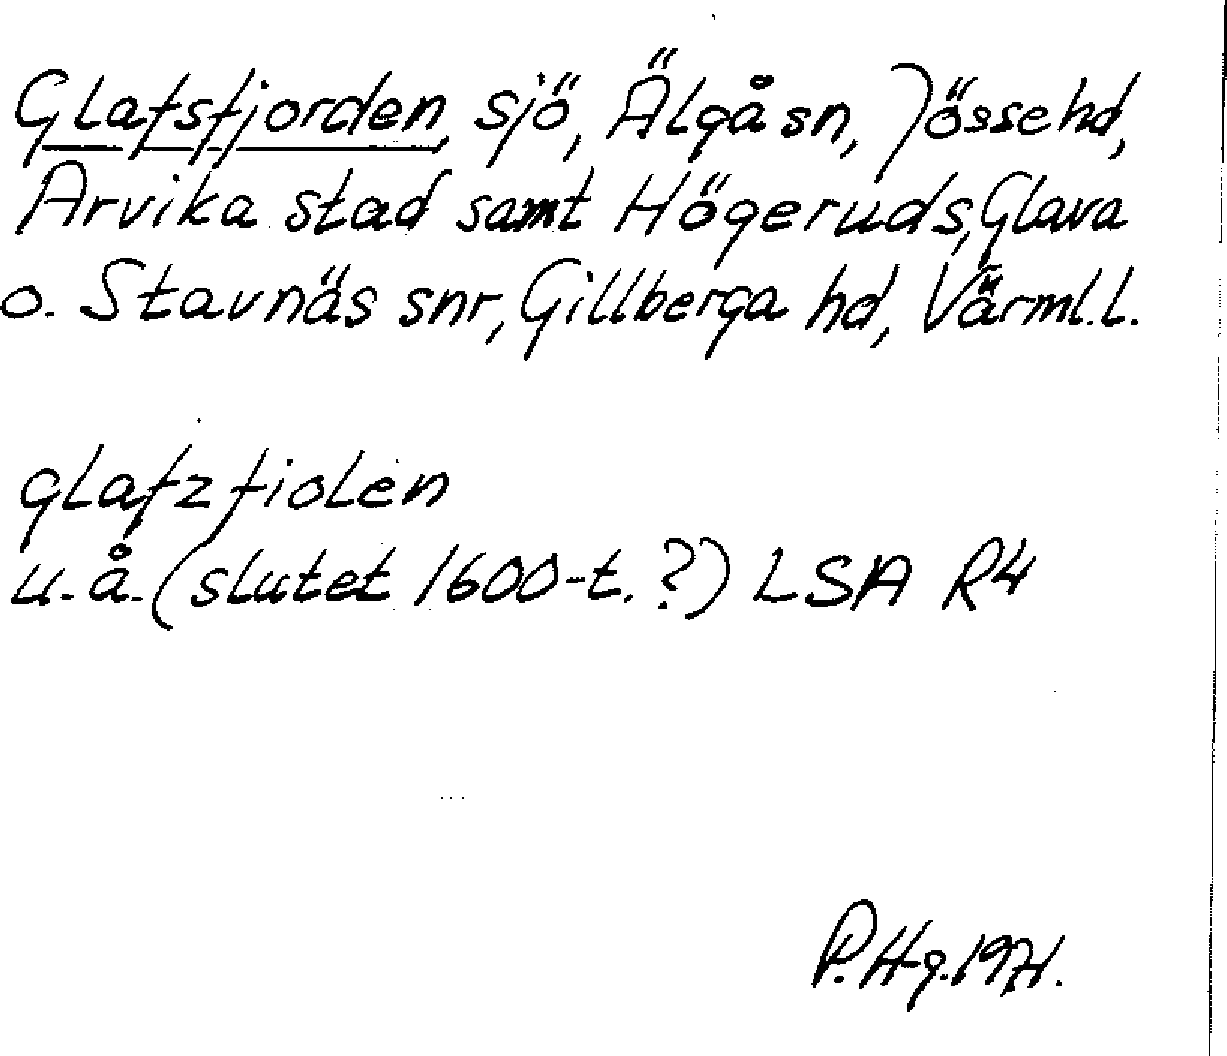 Glafsfjorden, sjö, Älgå sn, Jösse hd,
Arvika stad samt Högeruds, Glava
o. Stavnäs snr, Gillberga hd, Värml. l.
glafzfiolen
u. å. (slutet 1600-t. ?) LSA R4
P. Hg. 1971.